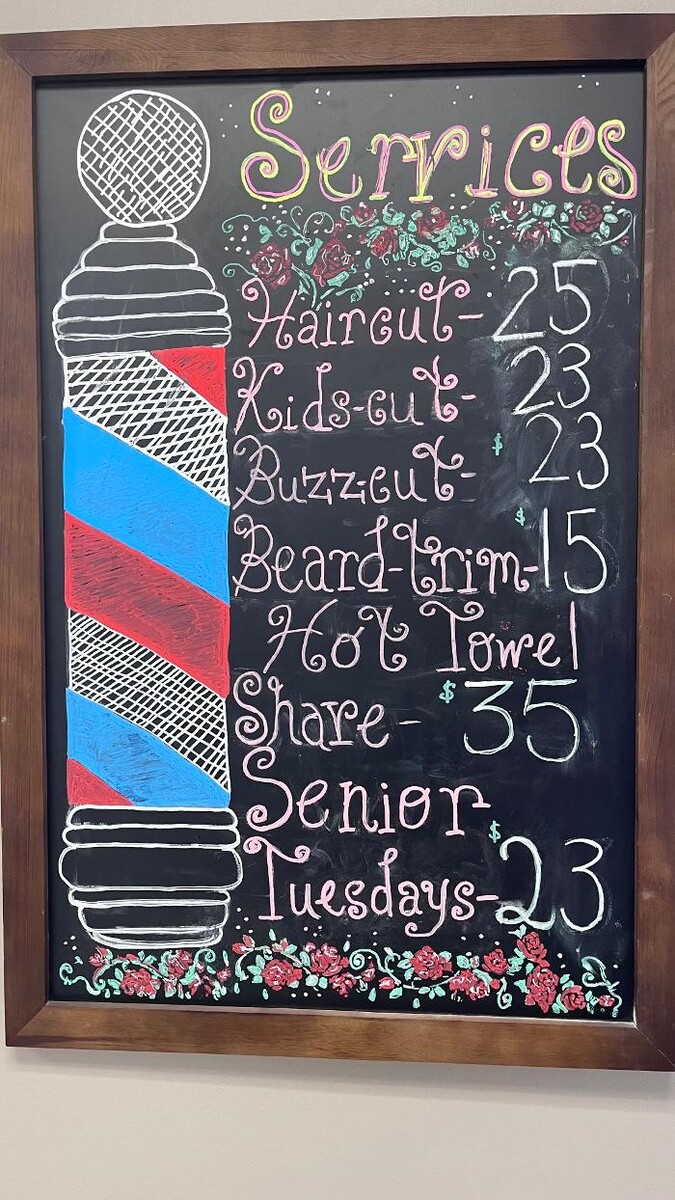 Services
Haircut- 25
Kids-cut- 23
Buzz-cut- $23
Beard-trim- $15
Hot Towel
Share- $35
Senior
Tuesdays- $23